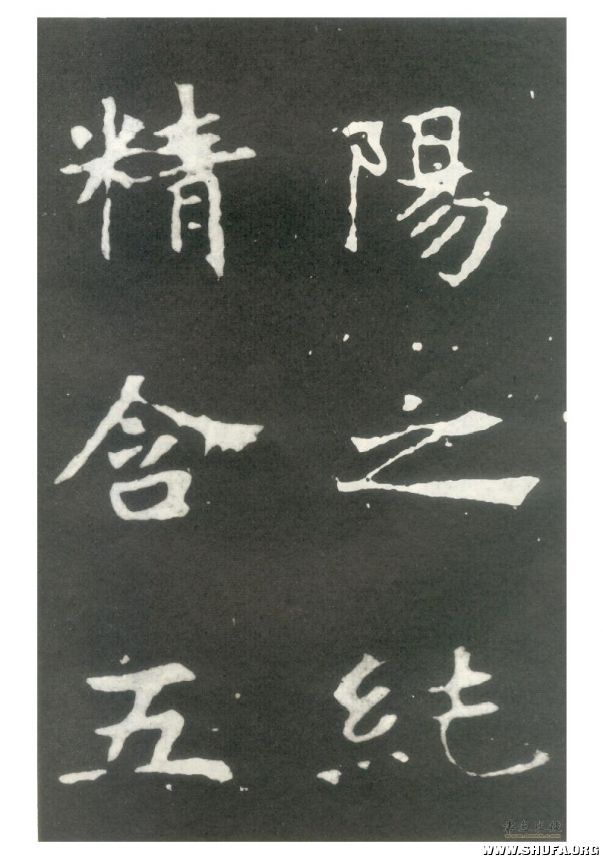 陽之純
精含五
WWW.SHUFA.ORG